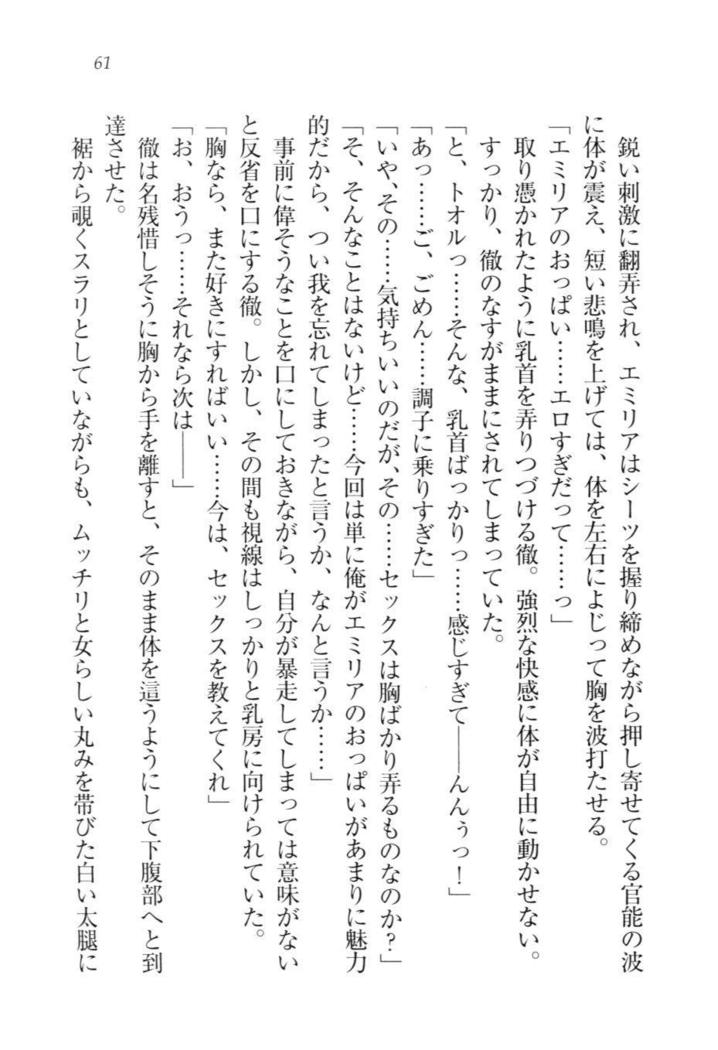 61
鋭い刺激に翻弄され、エミリアはシーツを握り締めながら押し寄せてくる官能の波
に体が震え、短い悲鳴を上げては、体を左右によじって胸を波打たせる。
「エミリアのおっぱい……エロすぎだって……っ」
取り憑かれたように乳首を弄りつづける徹。強烈な快感に体が自由に動かせない。
すっかり、徹のなすがままにされてしまっていた。
「と、トオルっ……そんな、乳首ばっかりっ……感じすぎて――んんぅっ！」
「あっ……ご、ごめん……調子に乗りすぎた」
「いや、その……気持ちいいのだが、その……セックスは胸ばかり弄るものなのか？」
「そ、そんなことはないけど……今回は単に俺がエミリアのおっぱいがあまりに魅力
的だから、つい我を忘れてしまったと言うか、なんと言うか……」
事前に偉そうなことを口にしておきながら、自分が暴走してしまっては意味がない
と反省を口にする徹。しかし、その間も視線はしっかりと乳房に向けられていた。
「胸なら、また好きにすればいい……今は、セックスを教えてくれ」
「お、おうっ……それなら次は――」
徹は名残惜しそうに胸から手を離すと、そのまま体を這うようにして下腹部へと到
達させた。
裾から覗くスラリとしていながらも、ムッチリと女らしい丸みを帯びた白い太腿に